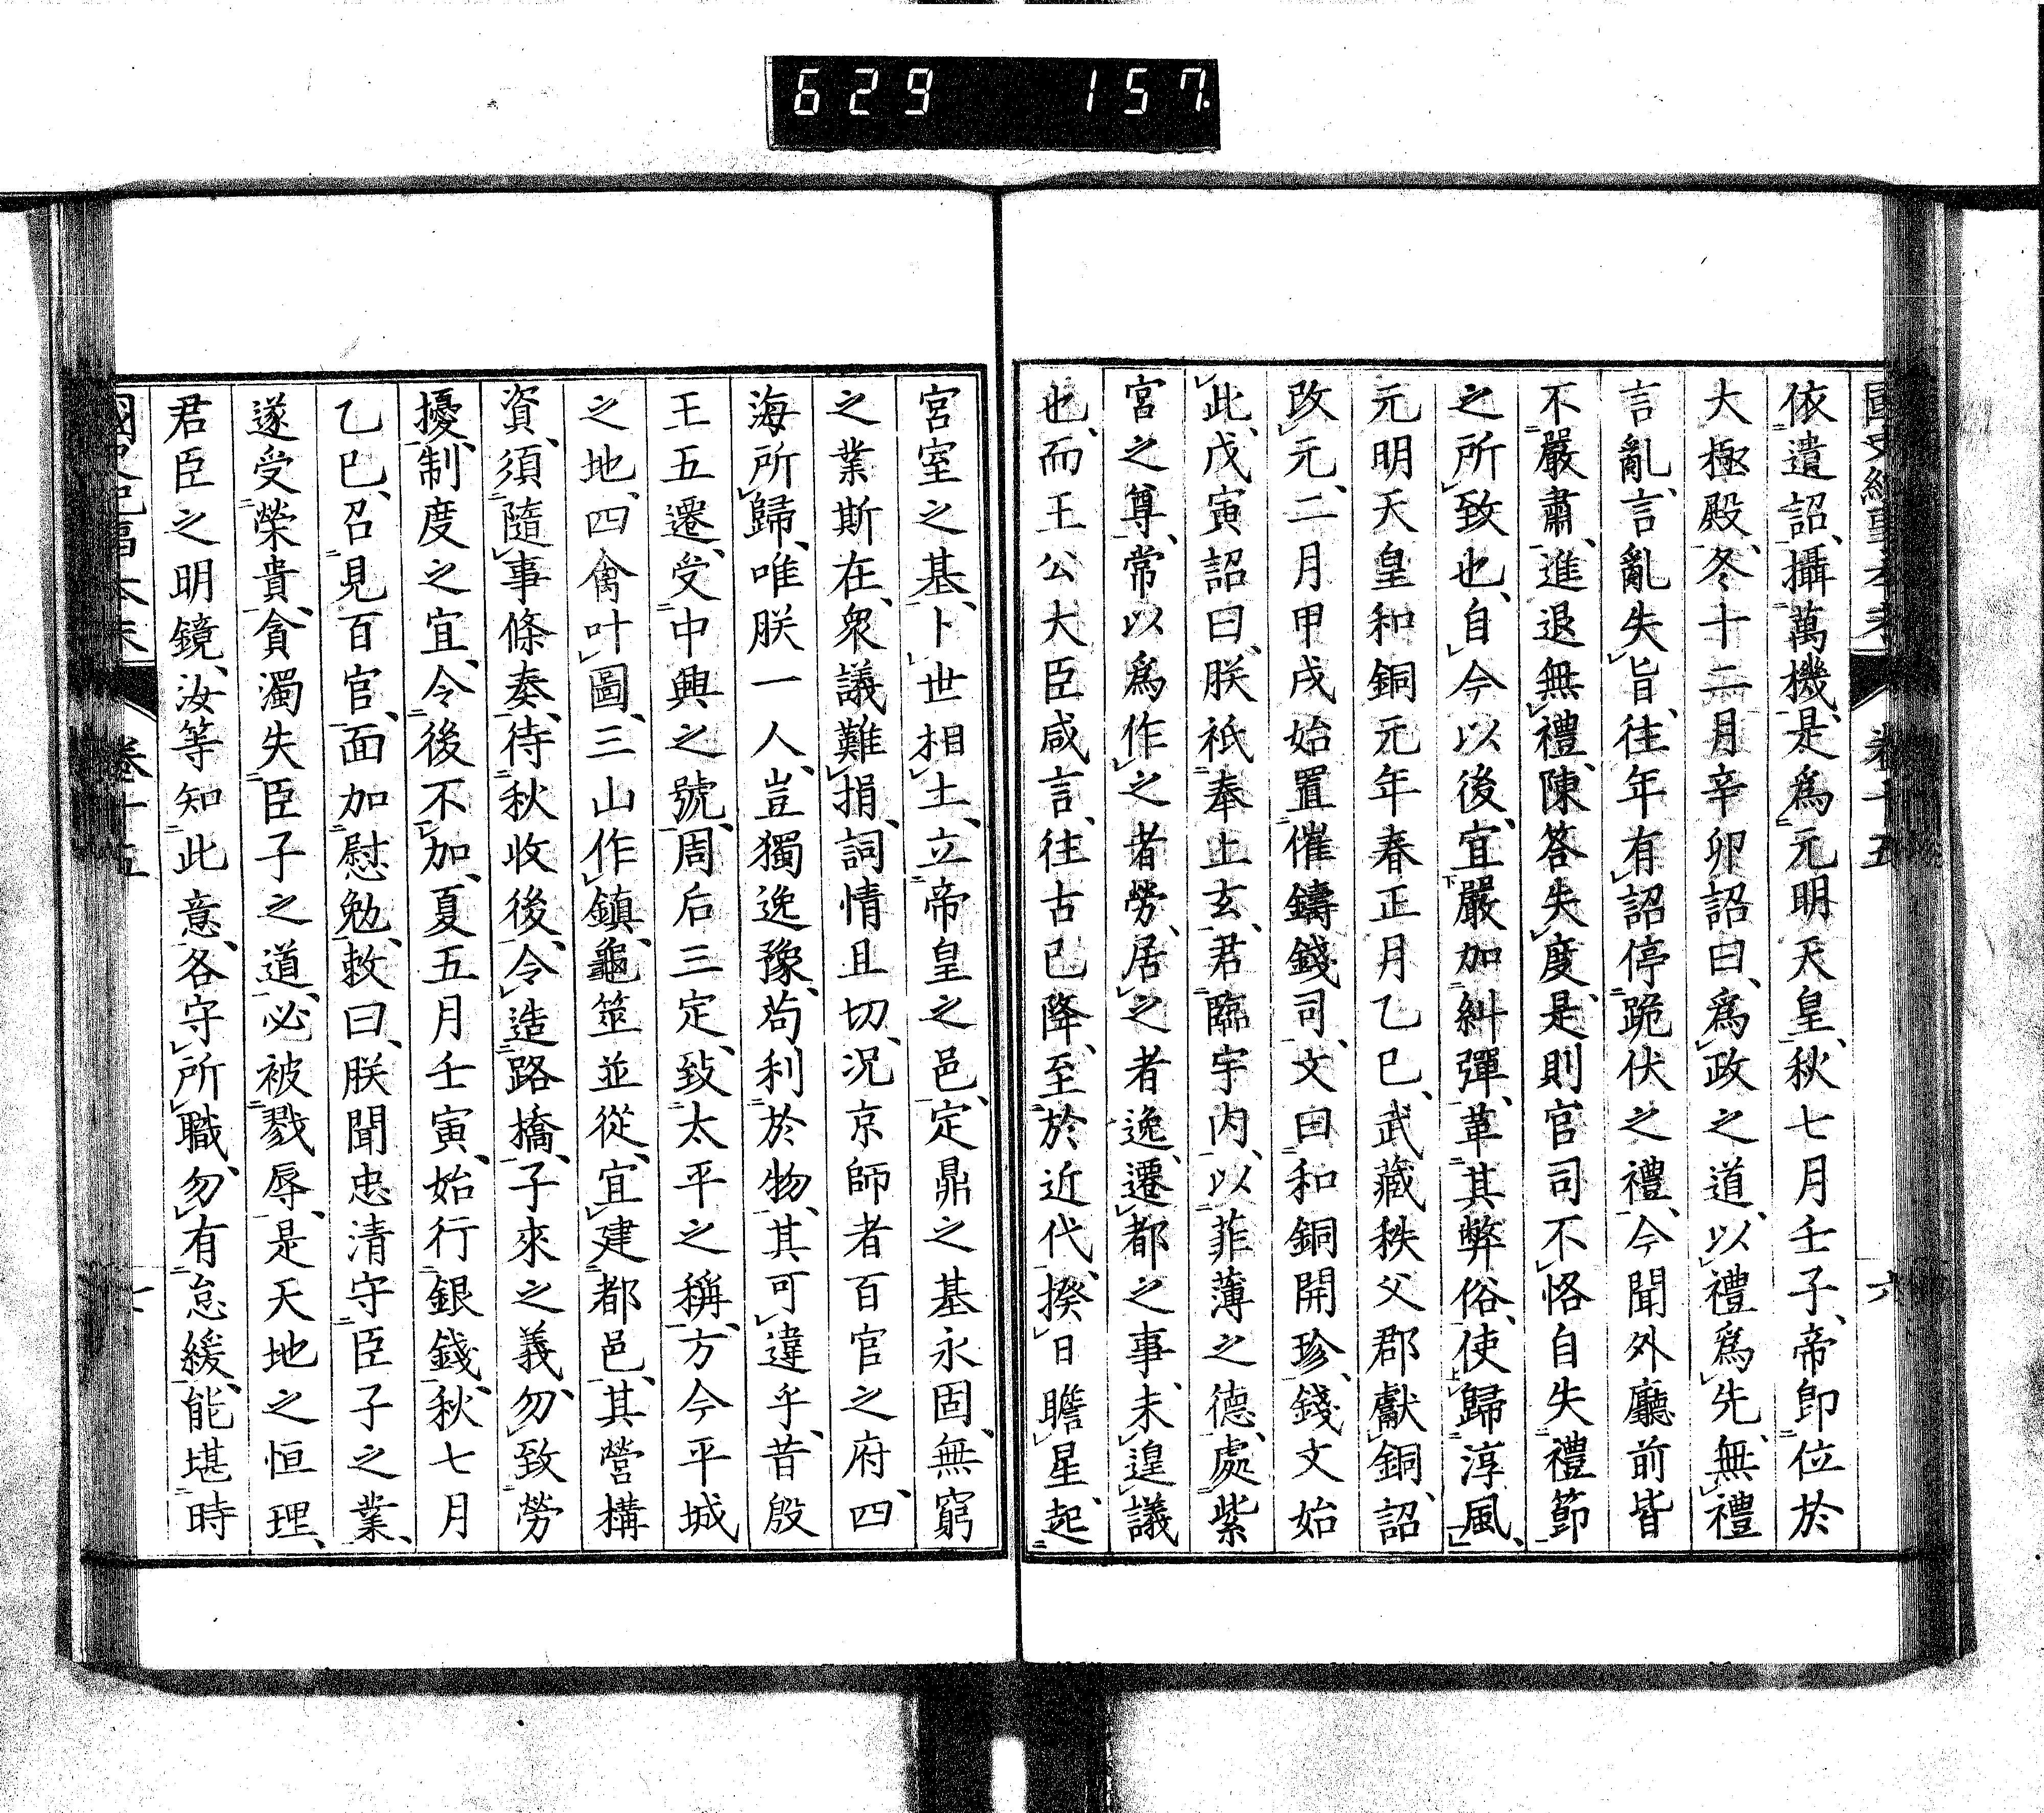 629 157
依遺詔、攝萬機、是爲元明天皇、秋七月壬子、帝卽位於
大極殿、冬十二月辛卯詔曰、爲政之道、以禮爲先、無禮
言亂、言亂失旨、往年有詔停跪伏之禮、今聞外廳前皆
不嚴肅、進退無禮、陳答失度、是則官司不恪自失禮節
之所致也、自今以後、宜嚴加糾彈、革其弊俗、使歸淳風、
元明天皇和銅元年春正月乙巳、武藏秩父郡獻銅、詔
改元、二月甲戌始置催鑄錢司、文曰和銅開珍、錢文始
此、戊寅詔曰、朕祇奉上玄、君臨宇内、以菲薄之德、處紫
宮之尊、常以爲作之者勞、居之者逸、遷都之事、未遑議
也、而王公大臣咸言、往古已降、至於近代、揆日瞻星、起
宮室之基、卜世相土、立帝皇之邑、定鼎之基永固、無窮
之業斯在、衆議難捐、詞情且切、況京師者百官之府、四
海所歸、唯朕一人、豈獨逸豫、苟利於物、其可違乎、昔殷
王五遷、受中興之號、周后三定、致太平之稱、方今平城
之地、四禽叶圖、三山作鎮、龜筮並從、宜建都邑、其營構
資、須隨事條奏、待秋收後、令造路橋、子來之義、勿致勞
擾、制度之宜、令後不加、夏五月壬寅、始行銀錢、秋七月
乙巳、召見百官、面加慰勉、敕曰、朕聞忠清守臣子之業、
遂受榮貴、貪濁失臣子之道、必被戮辱、是天地之恒理、
君臣之明鏡、汝等知此意、各守所職、勿有怠緩、能堪時
卷十五